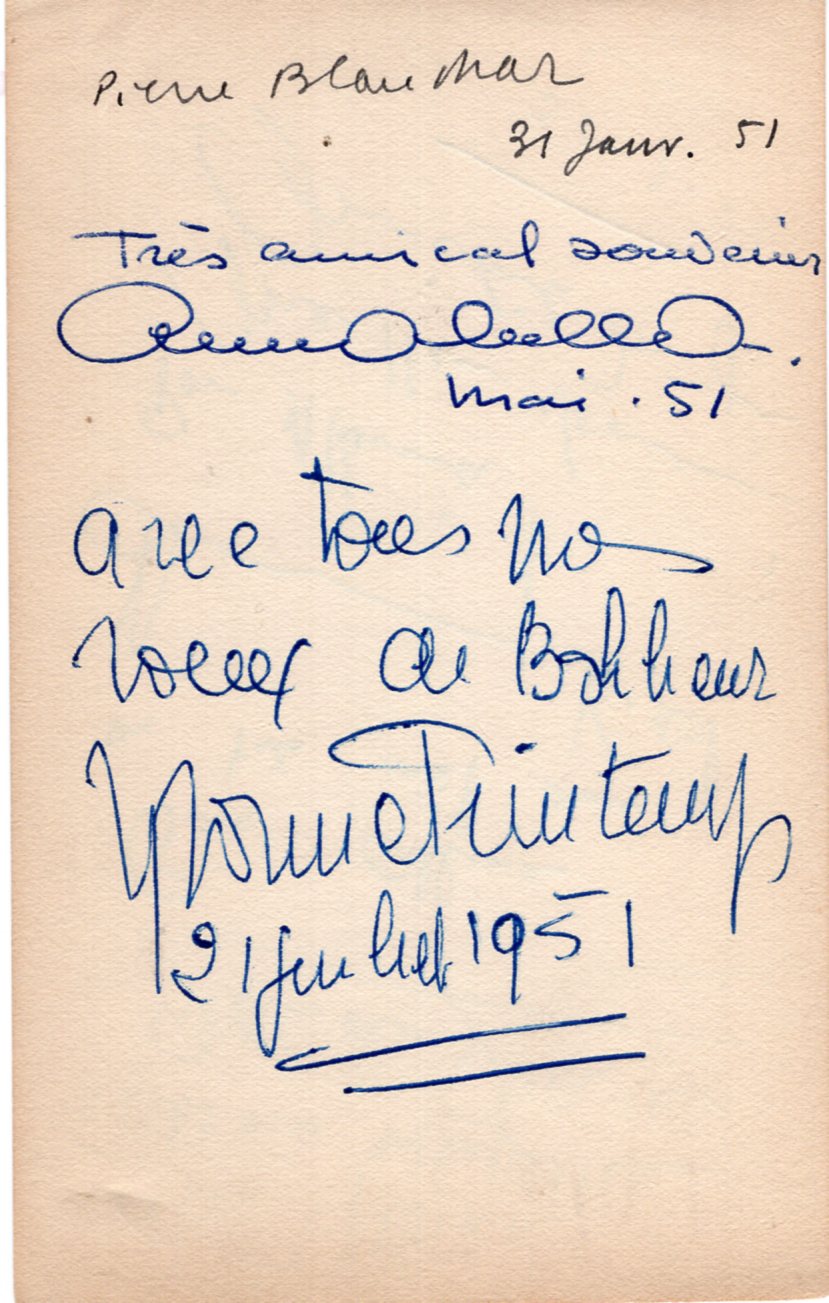 Pierre Blanchar
31 Janv. 51
Très amical souvenir
Annabella.
Mai . 51
avec tous mes
voeux de Bonheur
Yvonne Printemps
21 juillet 1951